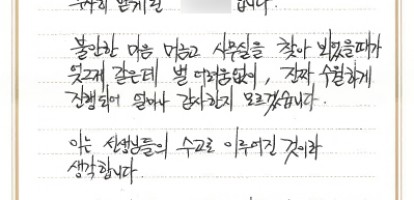 합니다.
불안한 마음 머금고 사무실을 찾아 뵈었을때가
엊그제 같은데 별 어려움없이, 진짜 수월하게
진행되어 얼마나 감사한지 모르겠습니다.
이는 선생님들의 수고로 이루어진 것이라
생각합니다.